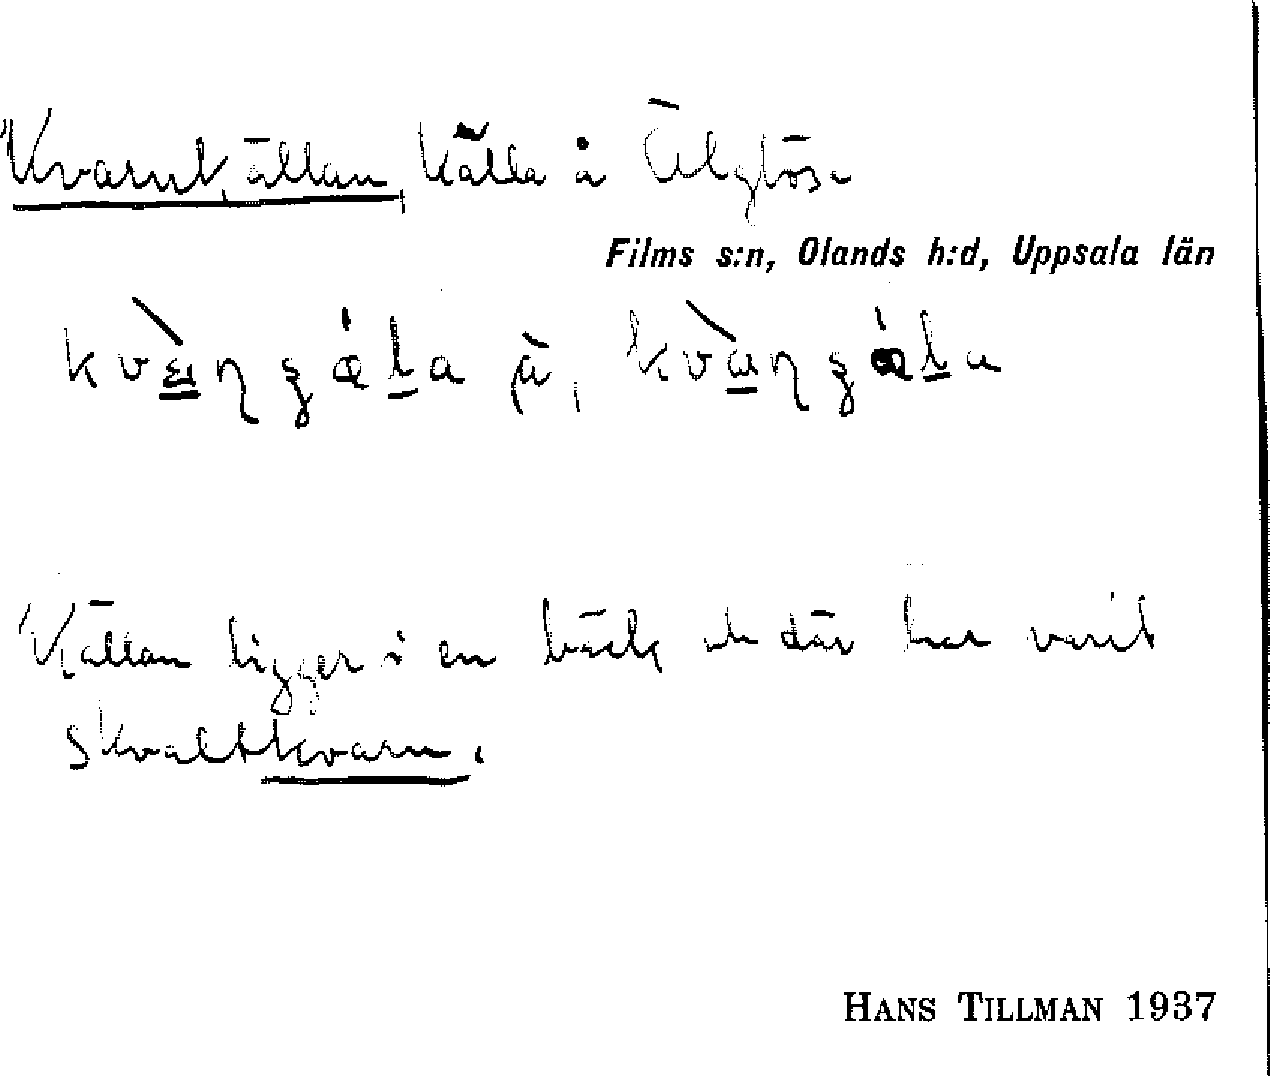 Kvarnkällan, källa å Älglös
Films s:n, Olands h:d, Uppsala län
Källan ligger i en bäck och där har varit
skvaltkvarn.
HANS TILLMAN 1937